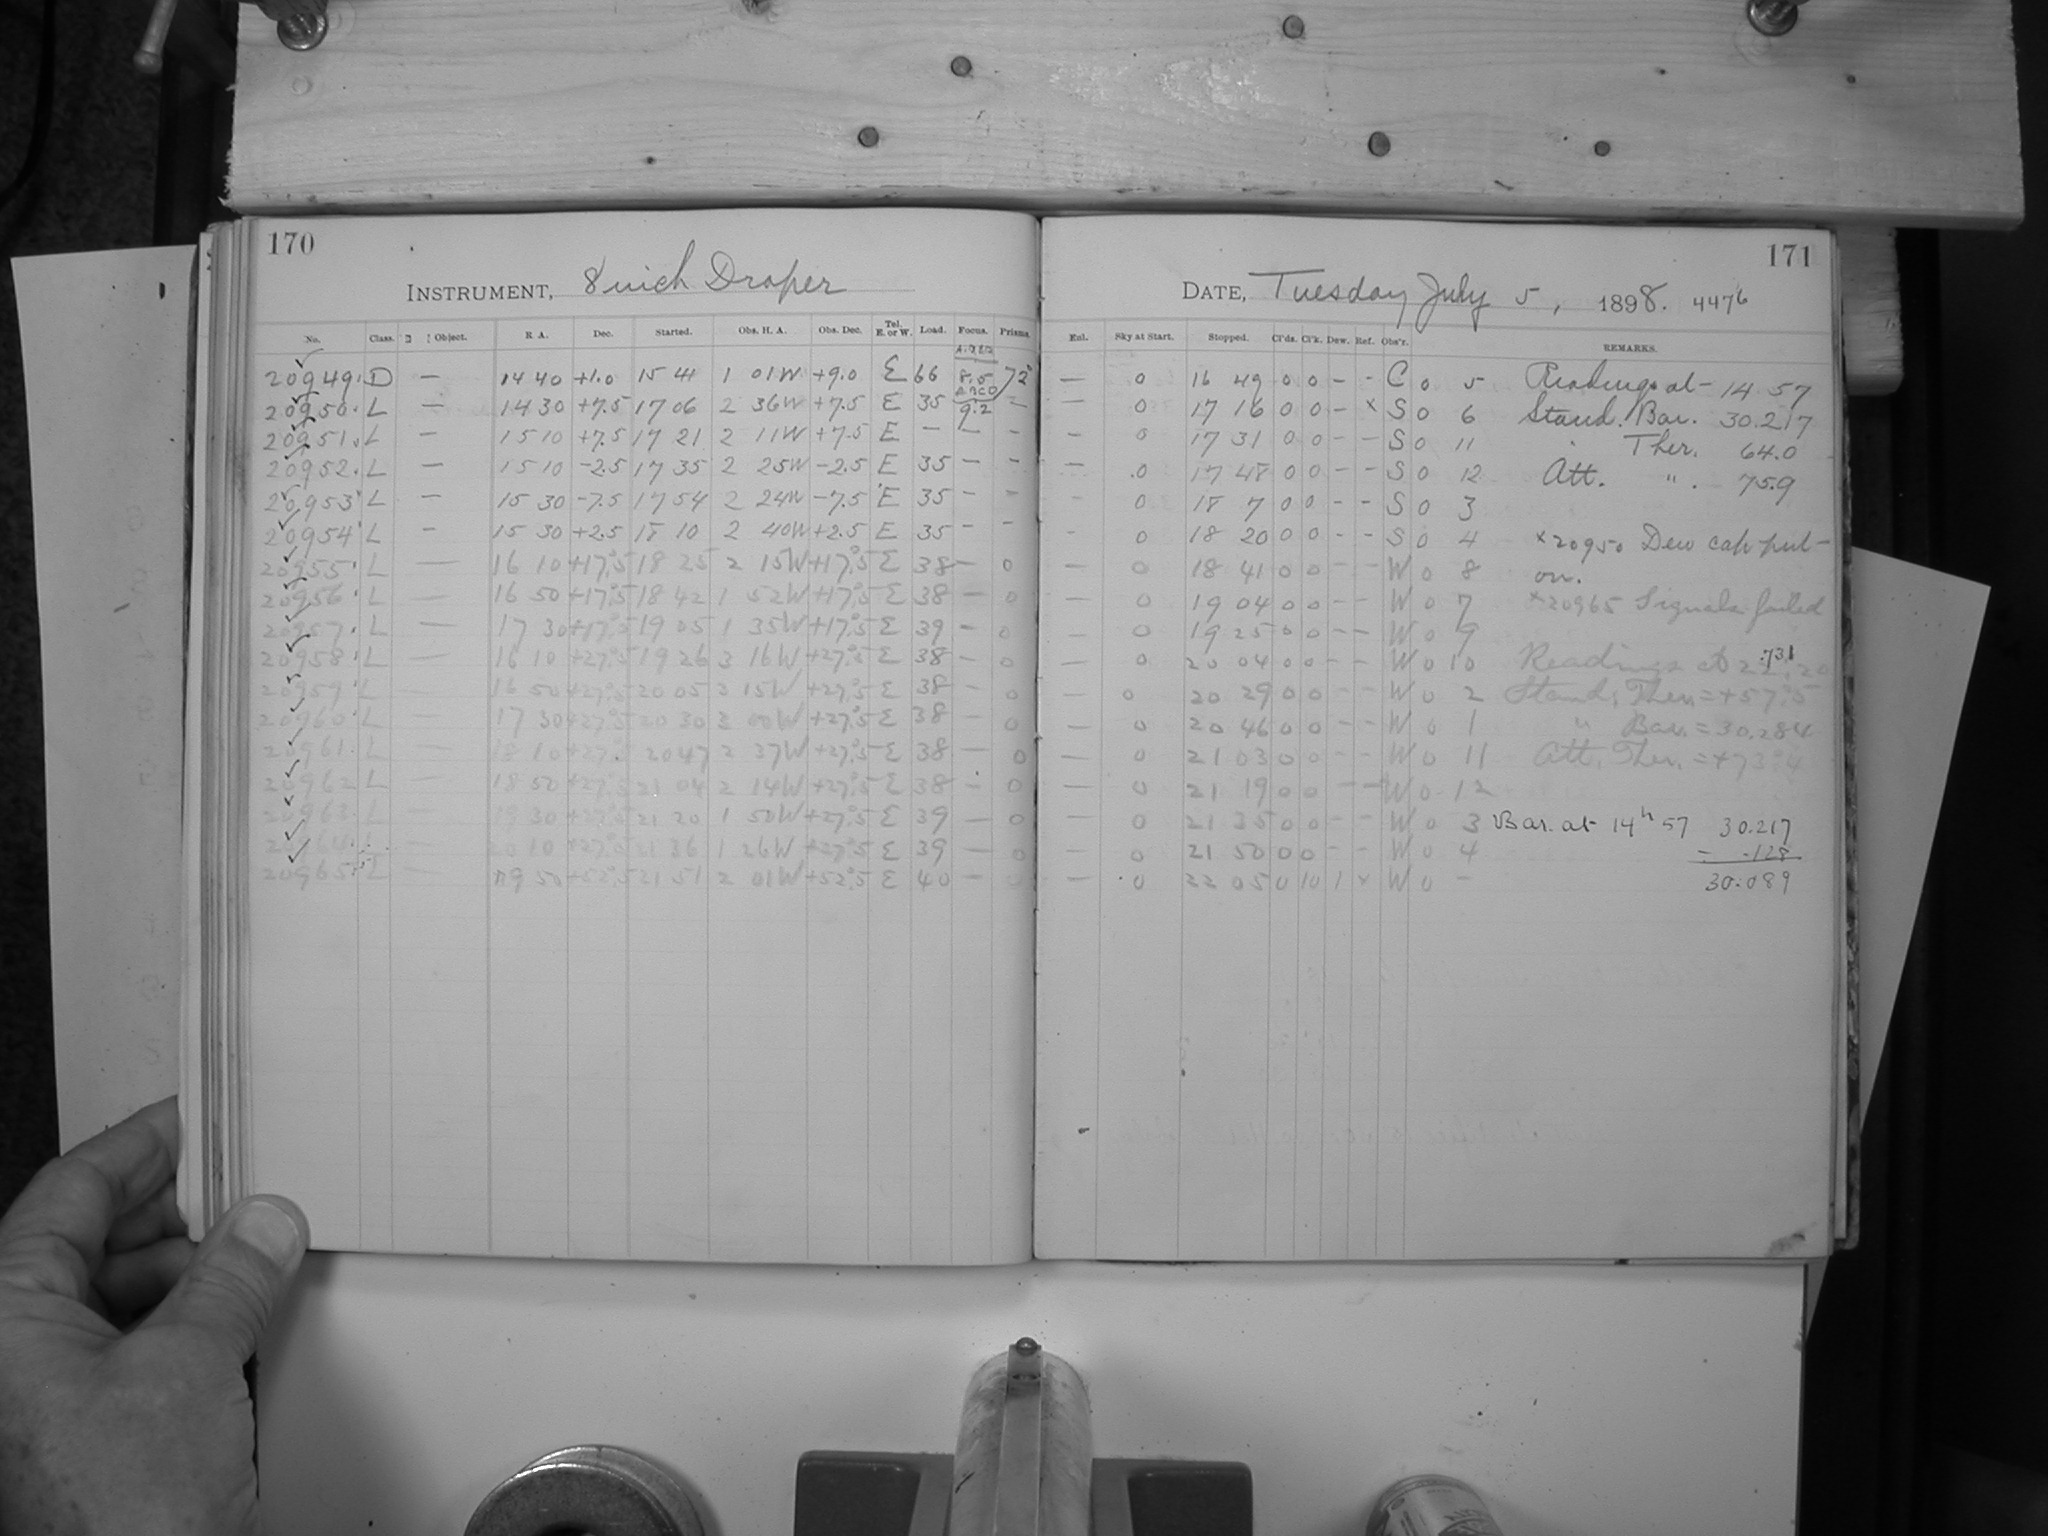 170
INSTRUMENT, 8 inch Draper
No. Class. Object. R. A. Dec. Started. Obs. H. A. Obs. Dec. Tel. E. or W. Load. Focus. Prisms.
20949. D — 14 40 +1.0 15 41 1 01W +9.0 E 66 8.5 72°
20950. L — 14 30 +7.5 17 06 2 36W +7.5 E 35 9.2 —
20951. L — 15 10 +7.5 17 21 2 11W +7.5 E — — —
20952. L — 15 10 -2.5 17 35 2 25W -2.5 E 35 — —
20953 L — 15 30 -7.5 17 54 2 24W -7.5 E 35 - -
20954 L - 15 30 +2.5 18 10 2 40W +2.5 E 35 - -
20955. L — 16 10 +17.°5 18 25 2 15W +17.°5 E 38 — 0
20956. L — 16 50 +17.°5 18 42 1 52W +17.°5 E 38 — 0
20957. L — 17 30 +17.°5 19 05 1 35W +17.°5 E 39 - 0
20958. L — 16 10 +27.°5 19 26 3 16W +27.°5 E 38 — 0
20959 L — 16 50 +27.°5 20 05 3 15W +27.°5 E 38 — 0
20960. L — 17 30 +27.°5 20 30 3 00W +27.°5 E 38 — 0
20961. L — 18 10 +27. 20 47 2 37W +27.°5 E 38 — 0
20962 L — 18 50 +27.°5 21 04 2 14W +27.°5 E 38 - 0
20963. L — 19 30 +27.°5 21 20 1 50W +27.°5 E 39 — 0
20964. L — 20 10 +27.°5 21 36 1 26W +27.°5 E 39 — 0
20965. L — 19 50 +52.°5 21 51 2 01W +52.°5 E 40 — 0
171
DATE, Tuesday July 5, 1898. 4476
Enl. Sky at Start. Stopped. Cl'ds. Cl'k. Dew. Ref. Obs'r. REMARKS.
— 0 16 49 0 0 - - C 0 5 Readings at — 14 57
— 0 17 16 0 0 - x S 0 6 Stand. Bar. 30.217
- 0 17 31 0 0 - - S 0 11 " Ther. 64.0
— 0 17 48 0 0 - - S 0 12 Att. " . 75.9
- 0 18 7 0 0 - - S 0 3
- 0 18 20 0 0 - - S 0 4 x20950 Dew cap put —
— 0 18 41 0 0 - - W 0 8 on.
— 0 19 04 0 0 - - W 0 7 x20965 Signals failed
— 0 19 25 0 0 - - W 0 9
— 0 20 04 0 0 - - W 0 10 Readings at 22 20 .731
— 0 20 29 0 0 - - W 0 2 Stand. Ther. = +57.°5
— 0 20 46 0 0 - - W 0 1 " Bar. = 30.284
— 0 21 03 0 0 - - W 0 11 Att. Ther. = +73.°4
— 0 21 19 0 0 - - W 0 12
— 0 21 35 0 0 - - W 0 3 Bar. at 14h 57 30.217
— 0 21 50 0 0 - - W 0 4 - .128
— 0 22 05 0 10 1 x W 0 - 30.089